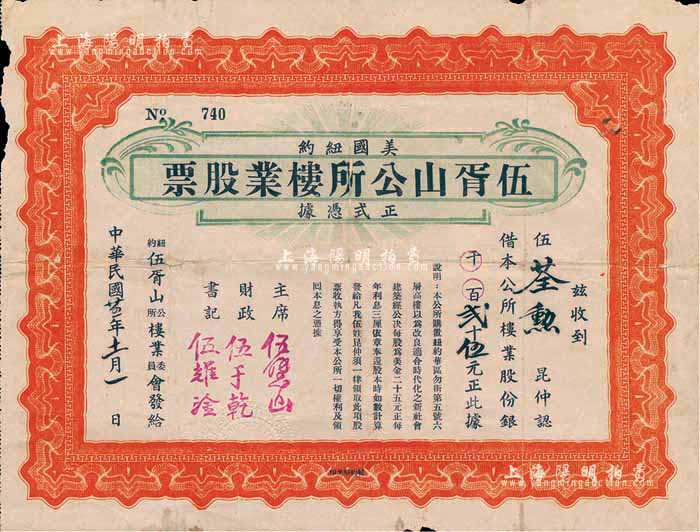 上海陽明拍賣
www.yangmingauction.com
Nº 740
美國紐約
伍胥山公所樓業股票
正式憑據
茲收到
伍荃勲昆仲認
借本公所樓業股份銀
千百貳十伍元正此據
說明:本公所購置紐約華區勿街第五號六
層高樓以為改良適合時代化之新社會
建築經公决每股為美金二十五元正每
年利息三厘依章奉還股本時如數計算
發給凡我伍姓昆仲須一律領取此項股
票收執方得享受本公所一切權利及領
回本息之憑據
主席
財政 伍于乾
書記 伍耀
紐約伍胥山公所樓業委員會發給
中華民國年十月一日
上海陽明拍賣
www.yangmingauction.com
上海陽明拍賣
www.yangmingauction.com